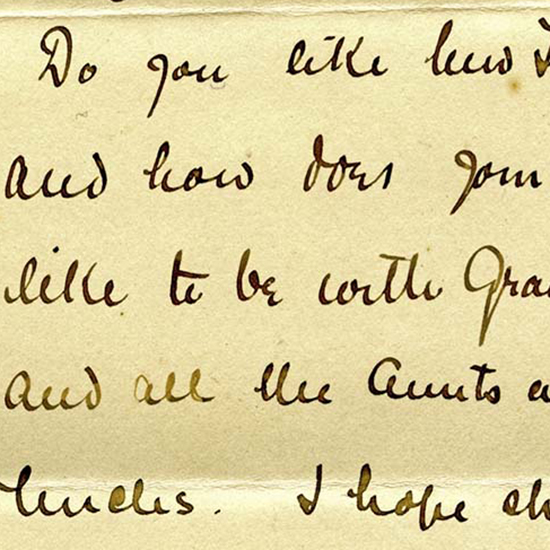 Do you like
and how does your
like to be with Gra
and all the Aunts a
Uncles. I hope sh